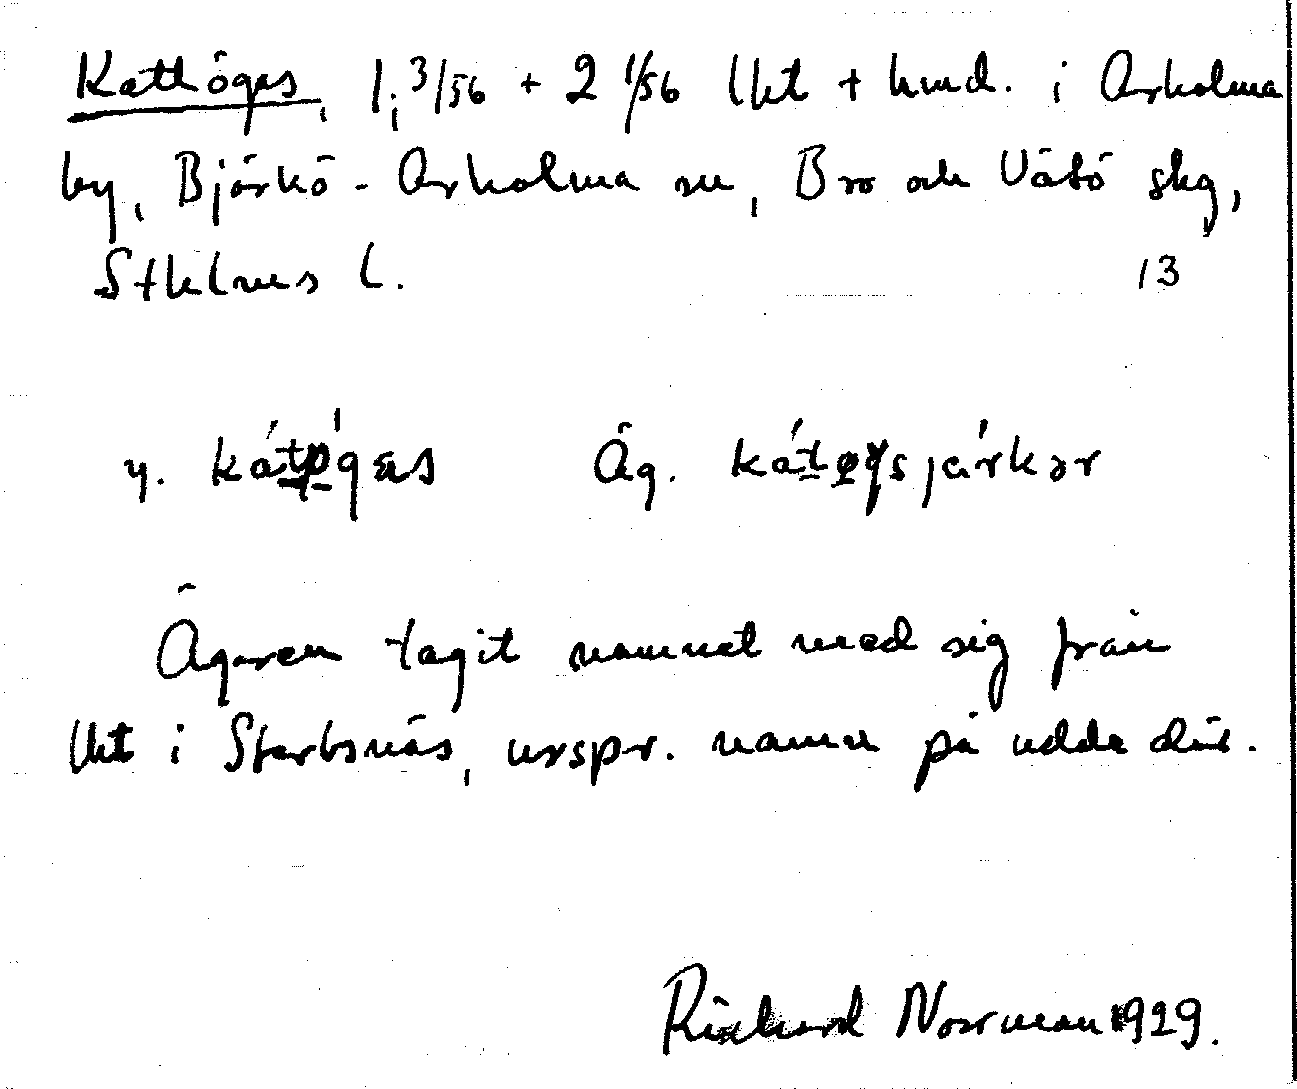 Katthögas, 1, 3/56 + 2 1/56 lht + hmd. i Arholma
by, Björkö-Arholma sn, Bro och Vätö skg,
Sthlms l. 13
y. kátǿgas Äg. kátøgsjärkər
Ägaren tagit namnet med sig från
lht i Starbsnäs, urspr. namn på udde där.
Richard Norrman 1929.